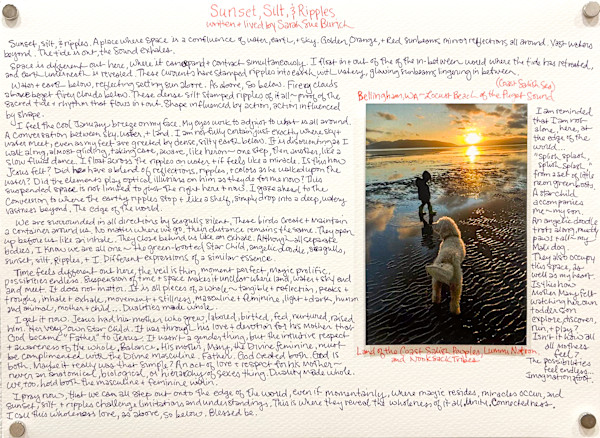 Sunset, Silt, & Ripples
written + lived by Sarah Sue Burich
Sunset, silt, & ripples. A place where space is a confluence of water, earth, + sky. Golden, Orange, + Red sunbeams mirror reflections all around. Vast waters
beyond. The tide is out, the sound exhales.
Space is different out here, where it can expand + contract simultaneously. I float in or out of the in-between world where the tide has retreated,
and earth underneath is revealed. These currents have stamped ripples into earth, with watery, glowing sunbeams lingering in between.
Water + earth below, reflecting setting sun above. As above, so below. Fiery clouds
above, beget fiery clouds below. These dense silt stamped ripples of it all— proof of the
sacred tide + rhythm that flows in + out. Shape influenced by action, action influenced
by shape.
I feel the cool January breeze on my face. My eyes work to adjust to what is all around.
A conversation between sky, water, + land. I am not fully certain just exactly where sky +
water meet, even as my feet are greeted by dense, silty earth below. It is disorienting as I
walk along, almost-gliding, taking care, aware, like heron— one step, then another, like a
slow fluid dance. I float across the ripples on water + it feels like a miracle. Is this how
Jesus felt? Did he have a blend of reflections, ripples, + colors as he walked upon the
water? Did the elements play optical illusions on him as they do for me now? This
suspended space is not limited to just the right here + now. I gaze ahead to the
conversion to where the earthy ripples stop + like a shelf, simply drop into a deep, watery,
vastness beyond. The edge of the world.
We are surrounded in all directions by seagulls silent. These birds create + maintain
a container around us. No matter where we go, their distance remains the same. They open
up before us like an inhale. They close behind us like an exhale. Although all separate
bodies, I know we are all one— the green-booted Star Child, angelic doodle, seagulls,
sunset, silt, ripples, + I. Different expressions of a similar essence.
Time feels different out here, the veil is thin, moment perfect, magic prolific,
possibilities endless. Suspension of time + space makes it unclear where land, water + sky end
and meet. It does not matter. It is all pieces of a whole— tangible + reflection, peaks +
troughs, inhale + exhale, movement + stillness, masculine + feminine, light + dark, human
and animal, mother + child... Dualities made whole.
I get it now. Jesus had his mother who grew, labored, birthed, fed, nurtured, raised
him. Her very own Star Child. It was through his love + devotion for his Mother that
God became "Father" to Jesus. It wasn't a gender thing, but the intuitive respect
+ awareness of the whole. Balance. His mother, Mary, the Divine Feminine, must
be complimented with the Divine Masculine. Father. God created both. God is
both. Maybe it really was that simple? An act of love + respect for his Mother—
never an anatomical, biological, or hierarchy of sexes thing. Duality made whole.
We, too, hold both the masculine + feminine within.
I pray now, that we can all step out onto the edge of the world, even if momentarily, where magic resides, miracles occur, and
sunset, silt, + ripples challenge limitations and understandings. This is where they reveal the wholeness of it all, Unity, Connectedness.
I call this wholeness love, as above, so below. Blessed be.
(Coast Salish Sea)
Bellingham, WA— Locust Beach of the Puget Sound
Land of the Coast Salish Peoples Lummi Nation
and Nooksack Tribes
I am reminded
that I am not
alone, here, at
the edge of the
world...
"splish, splash,
splish, splash..."
from a set of little
neon green boots.
A star child
accompanies
me— my son.
An angelic doodle
trots along, muddy
paws + all— my
Male dog.
They also occupy
this space, as
well as my heart.
Is this how
Mother Mary felt
watching her own
toddler son
explore, discover,
run, + play?
Isn't it how all
all mothers
feel?
The possibilities
feel endless...
Imagination took.